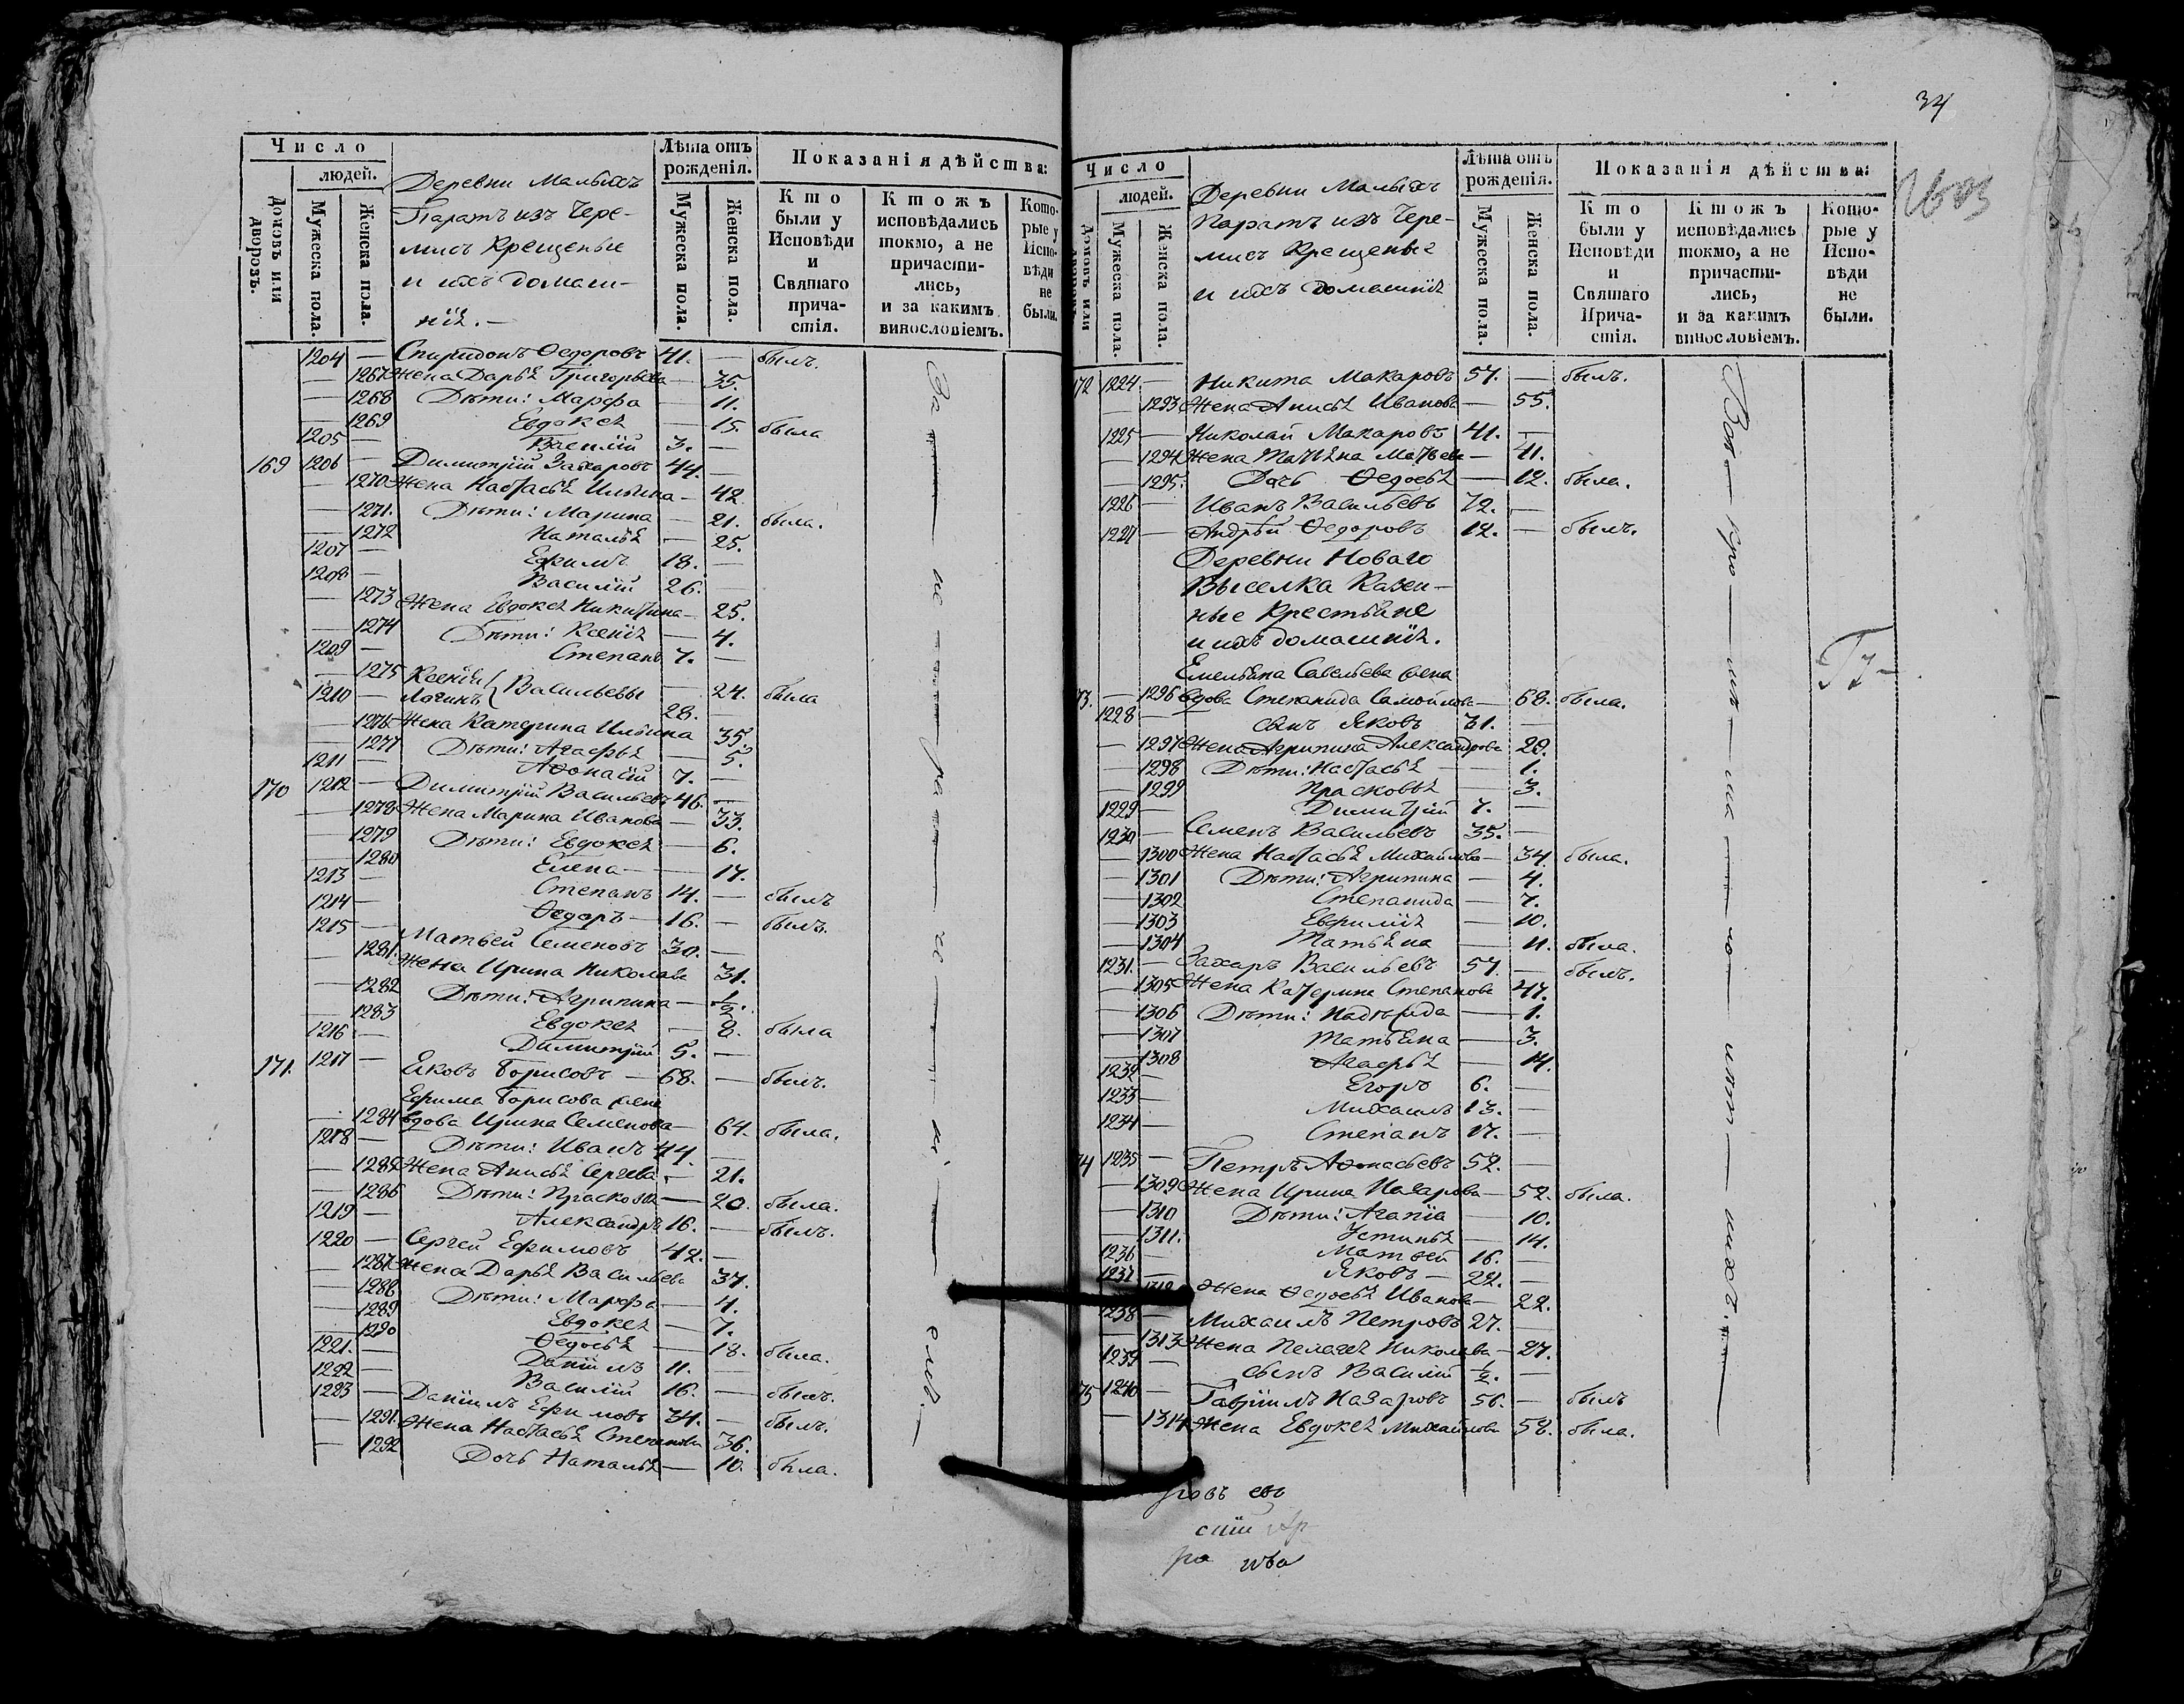 Число
людей.
Домовъ или дворовъ.
Мужеска пола.
Женска пола.
Деревни Малыхъ
Паратъ изъ Чере-
мисъ Крещеные
и ихъ домаш-
нія. —
Лѣта отъ рожденія.
Мужеска пола.
Женска пола.
Показанія дѣйства:
Кто были у Исповѣди и Святаго прича-стія.
Ктожъ исповѣдались токмо, а не причасти-лись, и за какимъ винословіемъ.
Кото-рые у Испо-вѣди не были.
1204 — Спиридонъ Ѳедоровъ 41. — былъ.
— 1267 Жена Дарья Григорьева — 35.
— 1268 Дѣти: Марфа — 11.
— 1269 Евдокея — 15. была
1205 — Василій 3. —
169 1206 — Димитрій Захаровъ 44. —
— 1270 Жена Настасья Ильина — 42
— 1271. Дѣти: Марина — 21. была.
— 1272 Наталья — 25.
1207 — Ефимъ 18. —
1208 — Василій 26. —
— 1273 Жена Евдокея Никитина — 25.
— 1274 Дѣти: Ксенія — 4.
1209 — Степанъ 7. —
— 1275 Ксенія Васильевы — 24. была
1210 — Логинъ 28. —
— 1276 Жена Катерина Ильина 35.
— 1277 Дѣти: Агафья — 5.
1211 — Аѳонасій 7. —
170 1212 — Димитрій Васильевъ 46. —
— 1278 Жена Марина Иванова — 33.
— 1279 Дѣти: Евдокея — 6.
— 1280 Елена — 17.
1213 — Степанъ 14. — былъ
1214 — Ѳедоръ — 16. — былъ.
1215 — Матвей Семеновъ 30. —
— 1281. Жена Ирина Николаева 31.
— 1282 Дѣти: Агрипина — ½.
— 1283 Евдокея — 8. была
1216 — Димитрій 5. —
171. 1217 — Яковъ Борисовъ — 68. — былъ.
Ефима Борисова жена
— 1284 вдова Ирина Семенова — 64. была.
1218 — Дѣти: Иванъ 44. —
— 1285 Жена Анисья Сергева — 21.
— 1286 Дѣти: Прасковья — 20. была.
1219 — Александръ 16. — былъ.
1220 — Сергей Ефимовъ 42. —
— 1287 Жена Дарья Васильева 37.
— 1288 Дѣти: Марфа — 4.
— 1289 Евдокея — 7.
— 1290 Ѳедосья — 18. была.
1221. — Даніилъ 11. —
1222 — Василій 16. — былъ.
1223 — Даніилъ Ефимовъ 34. — былъ.
— 1291. Жена Настасья Степанова 36.
— 1292 Дочь Наталья — 10. была.
34
Число
людей.
Домовъ или
Мужеска пола.
Женска пола.
Деревни Малыхъ
Паратъ изъ Чере-
мисъ Крещеные
и ихъ домашнія
Лѣта отъ рожденія.
Мужеска пола.
Женска пола.
Показанія дѣйства:
Кто были у Исповѣди и Святаго Прича-стія.
Ктожъ исповѣдались токмо, а не причасти-лись, и за какимъ винословіемъ.
Кото-рые у Испо-вѣди не были.
172 1224 — Никита Макаровъ 57. — былъ.
— 1293 Жена Анисья Иванова — 55.
1225 — Николай Макаровъ 41. —
— 1294 Жена Татьяна Матвева — 41.
— 1295. Дочь Ѳедосья — 12. была.
1226 — Иванъ Васильевъ 72. —
1227 — Андрѣй Ѳедоровъ 12. — былъ.
Деревни Новаго
Выселка Казен-
ные Крестьяне
и ихъ домашнія.
Емельяна Савельева жена
73. — 1296 вдова Степанида Самойлова — 68. была.
1228 — сынъ Яковъ 31. —
— 1297 Жена Агрипина Александрова 29.
— 1298 Дѣти: Настасья — 1.
— 1299 Прасковья — 3.
1229 — Димитрій 7. —
1230 — Семенъ Васильевъ 35. —
— 1300 Жена Настасья Михайлова — 34. была.
— 1301 Дѣти: Агрипина — 4.
— 1302 Степанида — 7.
— 1303 Евфимія — 10.
— 1304 Татьяна — 11. была.
1231. — Захаръ Васильевъ 57. — былъ.
— 1305 Жена Катерина Степанова 47.
— 1306 Дѣти: — 1.
— 1307 Татьяна — 3.
— 1308 Агафья — 14.
1232 — Егоръ 6. —
1233 — Михаилъ 13. —
1234 — Степанъ 17. —
74 1235 — Петръ Аѳонасьевъ 52. —
— 1309 Жена Ирина Назарова — 52. была.
— 1310 Дѣти: Агапія — 10.
— 1311. Устинья — 14.
1236 — Матвей 16. —
1237 — Яковъ — 22. —
— 1312 Жена Ѳедосья Иванова — 22.
1238 — Михаилъ Петровъ 27. —
— 1313 Жена Пелагея Николаева — 27.
1239 — сынъ Василій ½. —
75 1240 — Гавріилъ Назаровъ 56. — былъ
— 1314 Жена Евдокея Михайлова 58. была.